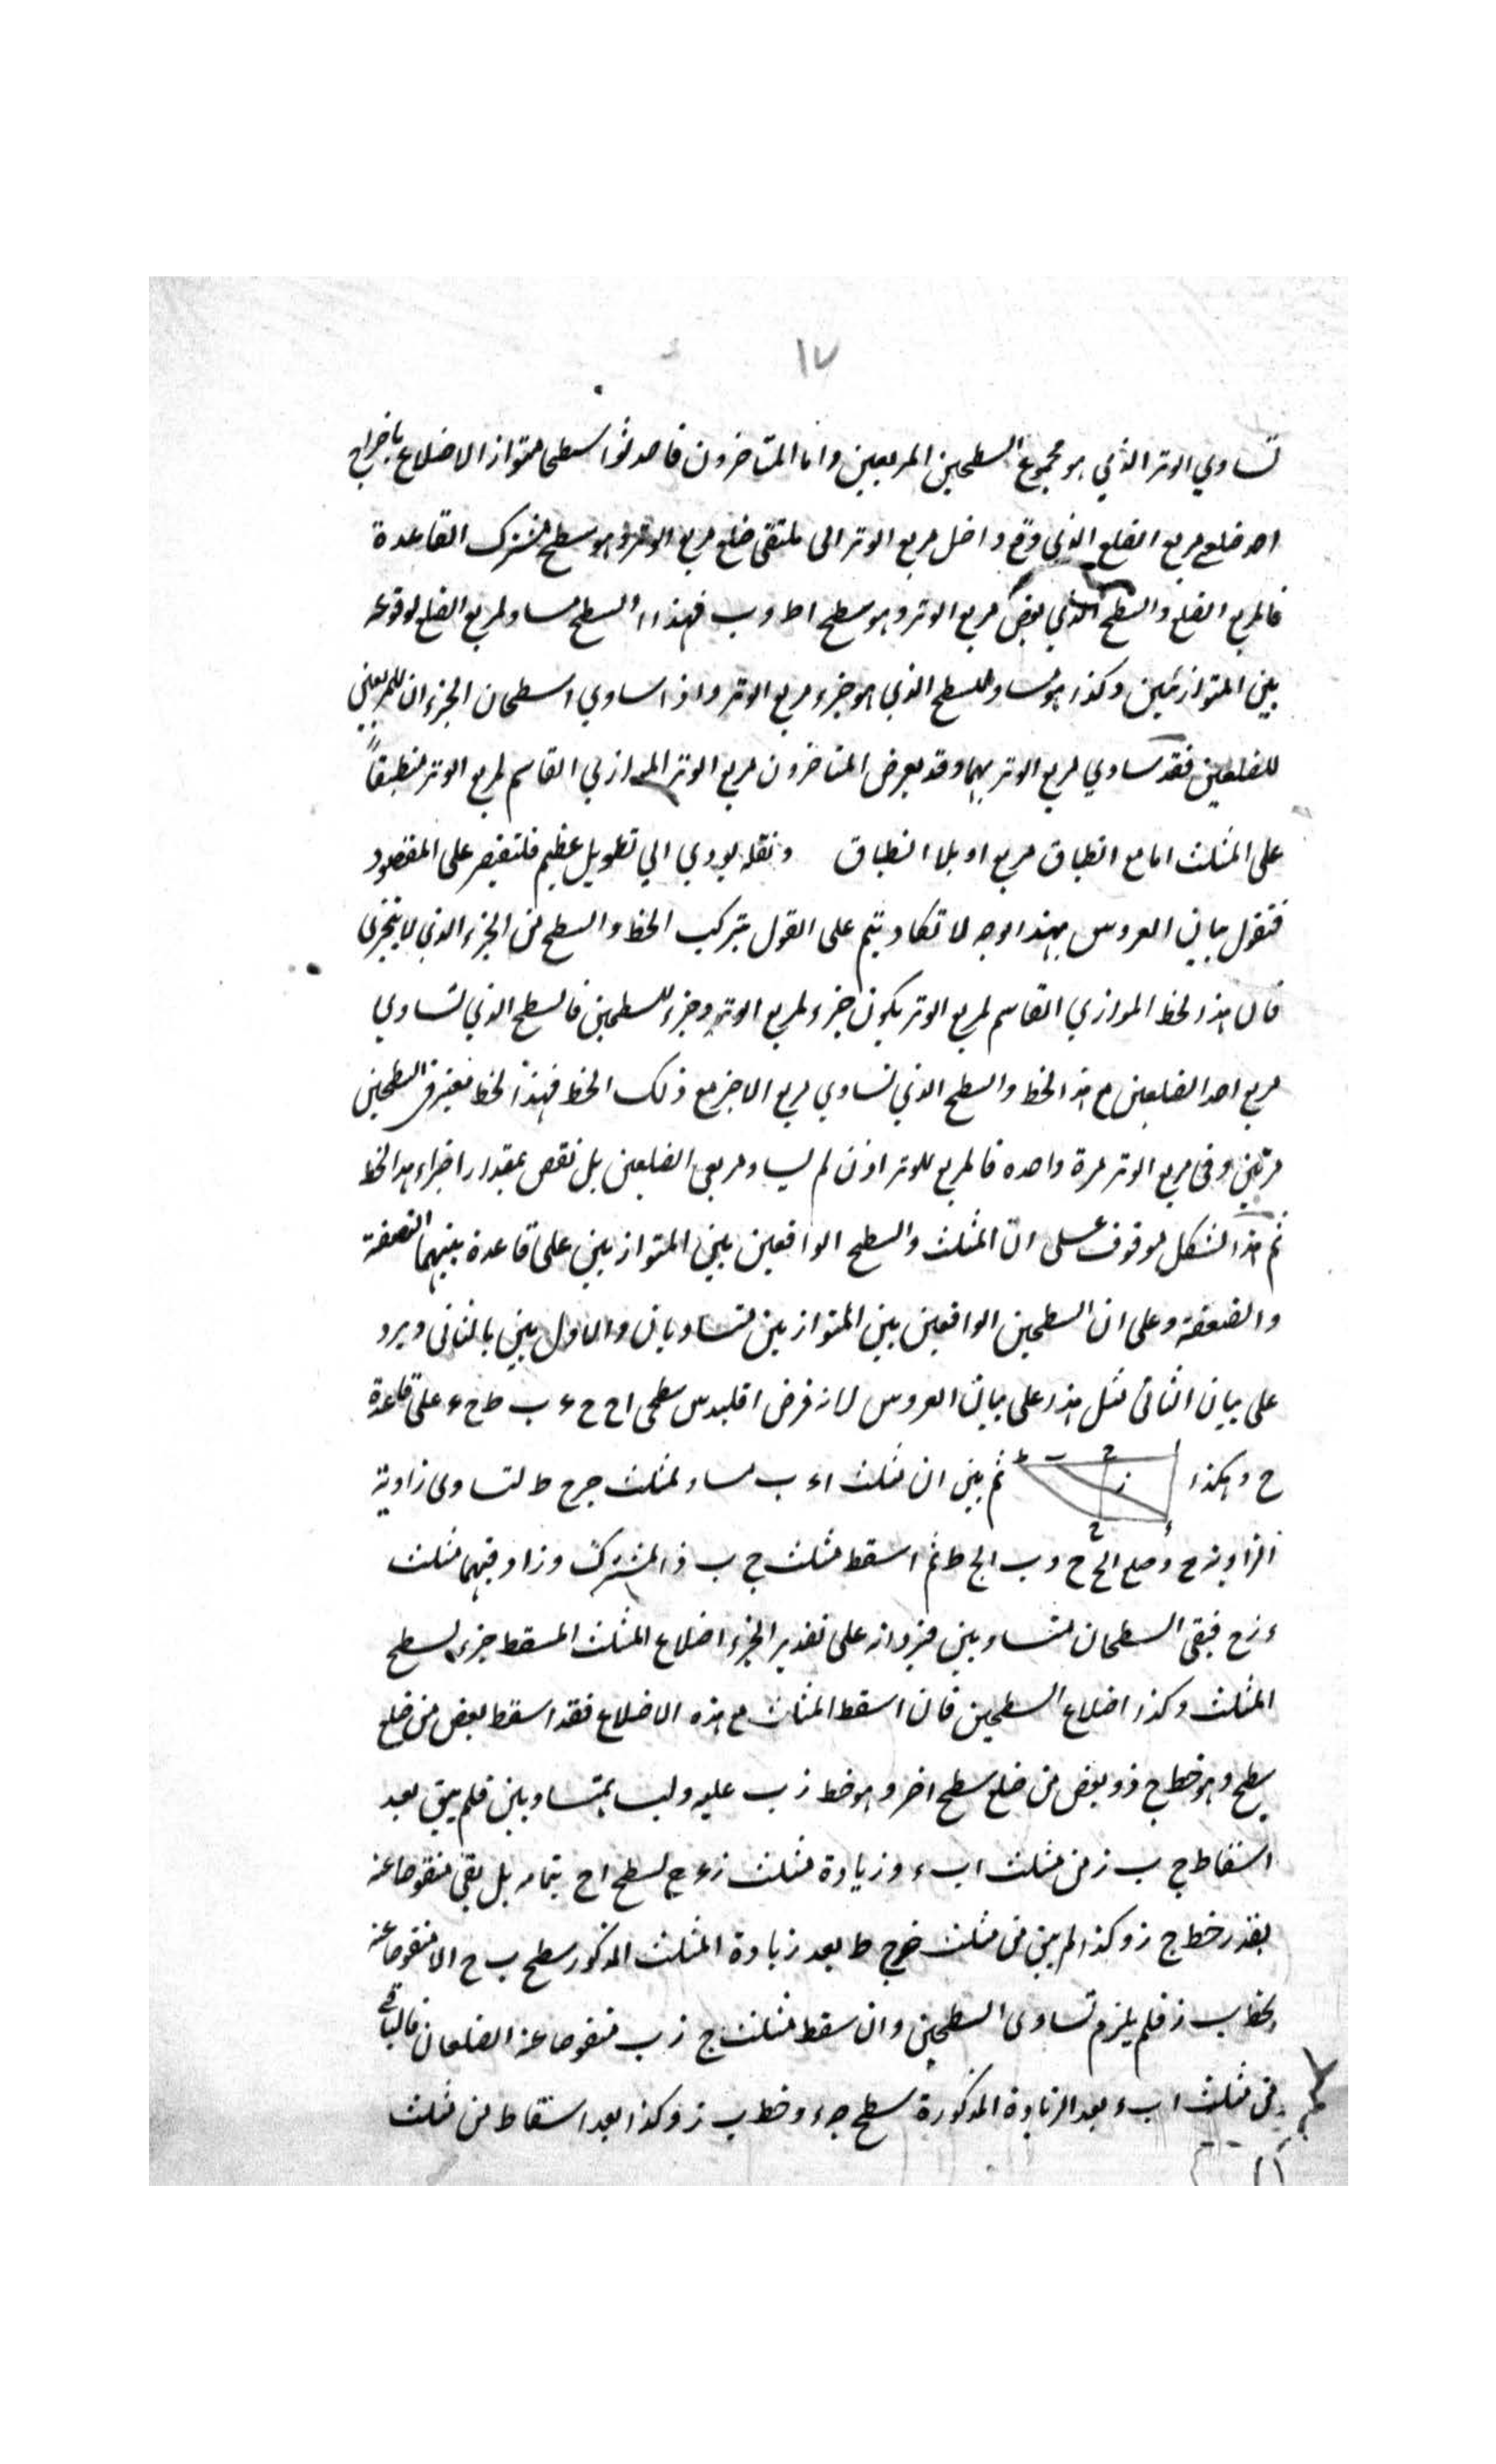 ١٧
تساوي الوتر الذي هو مجموع السطحين المربعين واما المتاخرون فاحدثوا سطحا متوازا الاضلاع باخراج
احد ضلع مربع الضلع الذي وقع داخل مربع الوتر الى ملتقى ضلع مربع الوتر وهو سطح مشترك القاعدة
فالمربع الضلع والسطح الذي بعض مربع الوتر وهو سطح اط وب فهذا السطح مساو لمربع الضلع لوقوعه
بين المتوازيين وكذا هو مساو للسطح الذي هو جزء مربع الوتر واذا ساوي السطحان الجزءان للمربعين
للضلعين فقد ساوي مربع الوتر بهما وقد يعرض المتاخرون مربع الوتر الموازي القاسم لمربع الوتر منطبقاً
على المثلث اما مع انطباق مربع او بلا انطباق ونقله يودي الي تطويل عظيم فلنقتصر على المقصود
فنقول بيان العروس بهذا الوجه لا تكاد يتم على القول بتركب الخط والسطح من الجزء الذي لا يتجزى
فان هذا الخط الموازي القاسم لمربع الوتر يكون جزء لمربع الوتر وجزء للسطحين فالسطح الذي تساوي
مربع احد الضلعين مع هذا الخط والسطح الذي تساوي مربع الاخر مع ذلك الخط فهذا الخط معتبر في السطحين
مرتين وفى مربع الوتر مرة واحده فالمربع للوتر اذن لم يساو مربعي الضلعين بل نقص بمقدار اجزاء هذا الخط
ثم هذا الشكل موقوف على ان المثلث والسطح الواقعين بين المتوازيين على قاعدة بينهما النصفة
والضعفة وعلى ان السطحين الواقعين بين المتوازيين متساويان والاول بين بالثانى ويرد
على بيان الثانى مثل هذا على بيان العروس لانه فرض اقليدس سطحى اح ح ء ب ط ح ء على قاعدة
ح وهكذا ثم بين ان مثلث اء ب مساو لمثلث ج ح ط لتساوى زاوية
الزاوية ج وضلع الح ح وب الج ط ثم اسقط مثلث ج ب ز المشترك وزاد فيهما مثلث
ء ز ح فبقى السطحان متساويين فيرد انه على تقدير الجزء اضلاع المثلث المسقط جزء لسطح
المثلث وكذا اضلاع السطحين فان اسقط المثلث مع هذه الاضلاع فقد اسقط بعض من ضلع
سطح وهو خط ج ز وبعض من ضلع سطح اخر وهو خط ز ب عليه وليسا بمتساويين فلم يبق بعد
اسقاط ج ب ز من مثلث اب ء وزيادة مثلث ز ء ح لسطح اح بتمامه بل بقى منقوصا عنه
بقدر خط ج ز وكذا لم يبق من مثلث ح ج ط بعد زيادة المثلث المذكور سطح ب ح الا منقوصا عنه
بخط ب ز فلم يلزم تساوى السطحين وان سقط مثلث ج ز ب منقوصا عنه الضلعان فالباقى
من مثلث اب ء بعد الزيادة المذكورة سطح ج ء وخط ب ز وكذا بعد اسقاط من مثلث